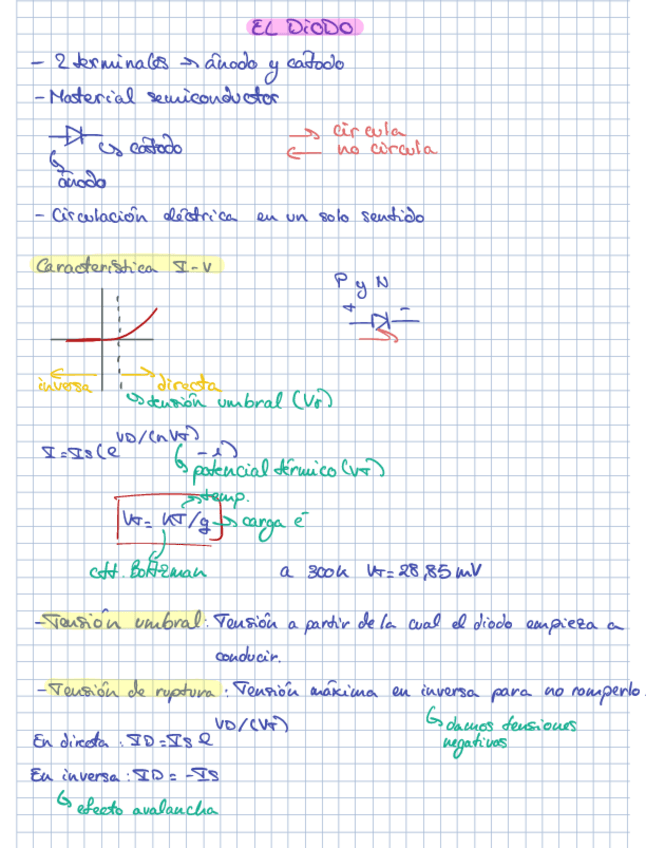 EL DIODO
- 2 terminales → ánodo y cátodo
- Material semiconductor
cátodo
ánodo
→ circula
← no circula
- Circulación eléctrica en un solo sentido
Característica I-V
P y N
+ -
inversa
directa
tensión umbral (VT)
I = IS (e^VD/(nVT) - 1)
potencial térmico (VT)
temp.
VT = KT/q → carga e-
ctt. Boltzman
a 300K VT = 28,85 mV
- Tensión umbral: Tensión a partir de la cual el diodo empieza a
conducir.
- Tensión de ruptura: Tensión máxima en inversa para no romperlo.
damos tensiones
negativas
En directa: ID = IS e^VD/(VT)
En inversa: ID = -IS
efecto avalancha